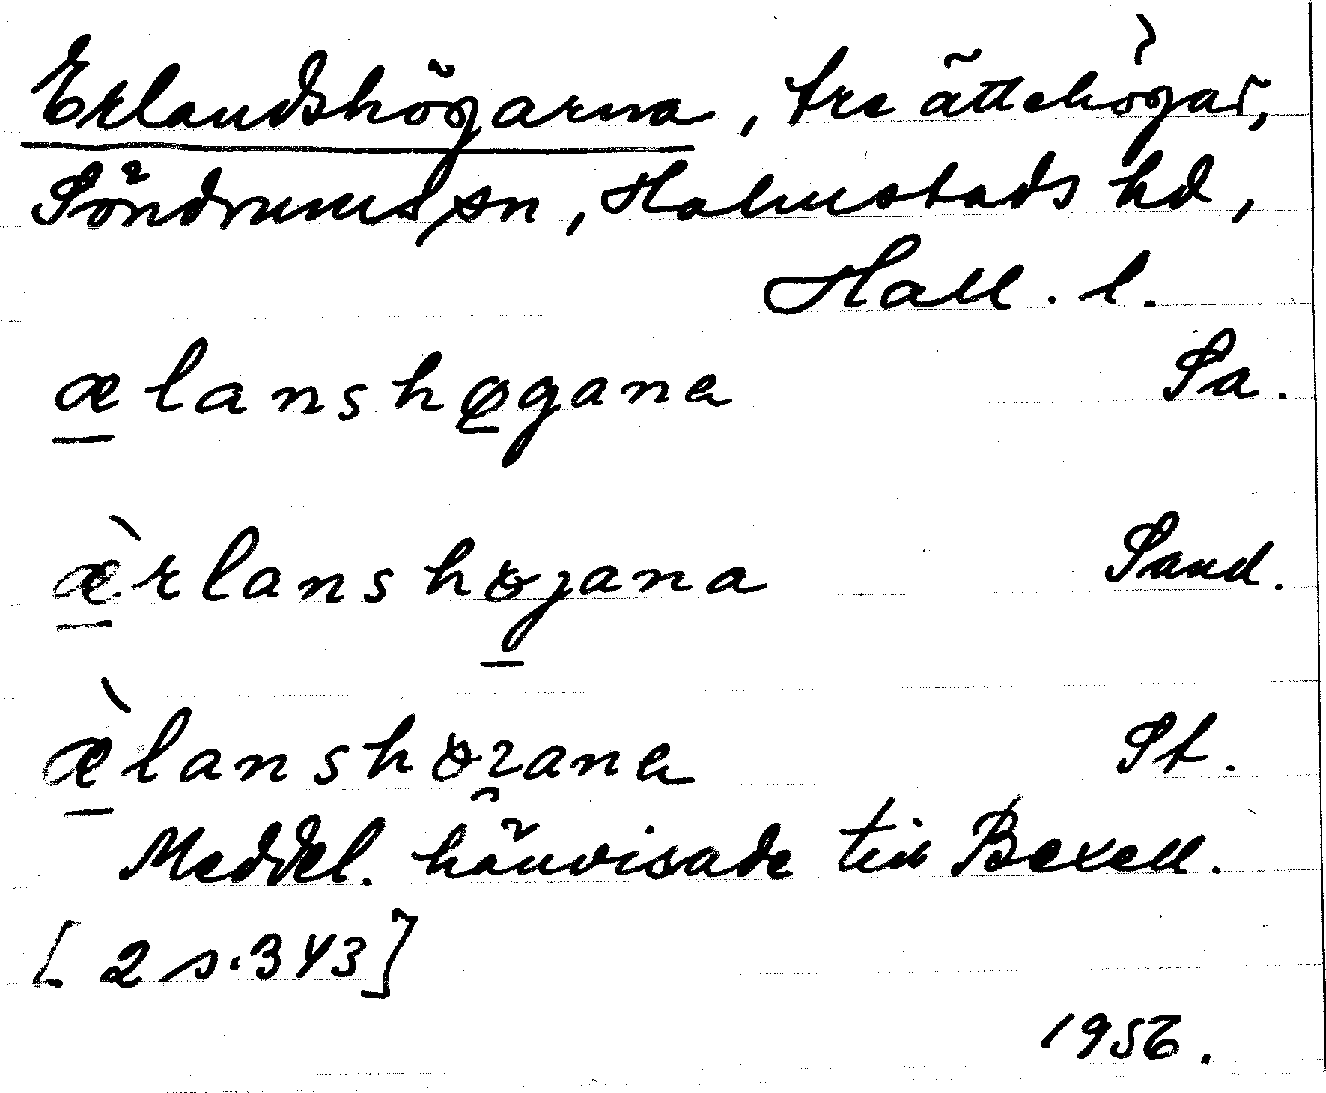 Erlandshögarna, tre ättehögar,
Söndrums sn, Halmstads hd,
Hall. l.
ælanshøgana Sa.
æ̀rlanshøjana Sand.
æ̀lanshøzana St.
Meddel. hänvisade till Bexell.
[2 s. 343]
1956.